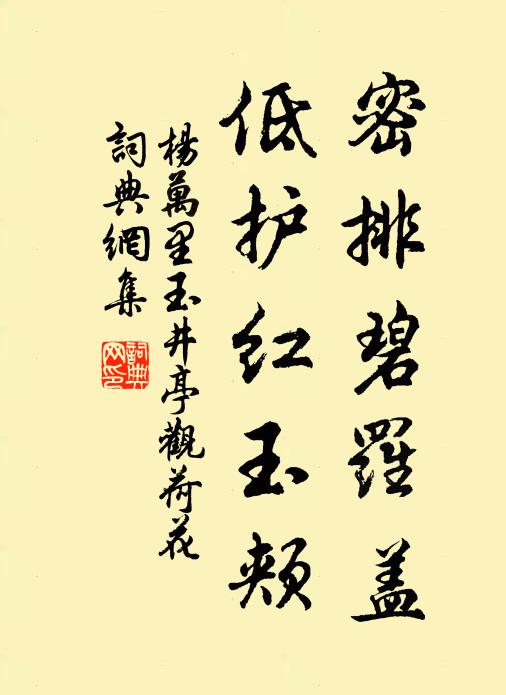 密排碧羅盖
低护红玉颊
楊萬里玉井亭觀荷花
詞典網集
詞典网印